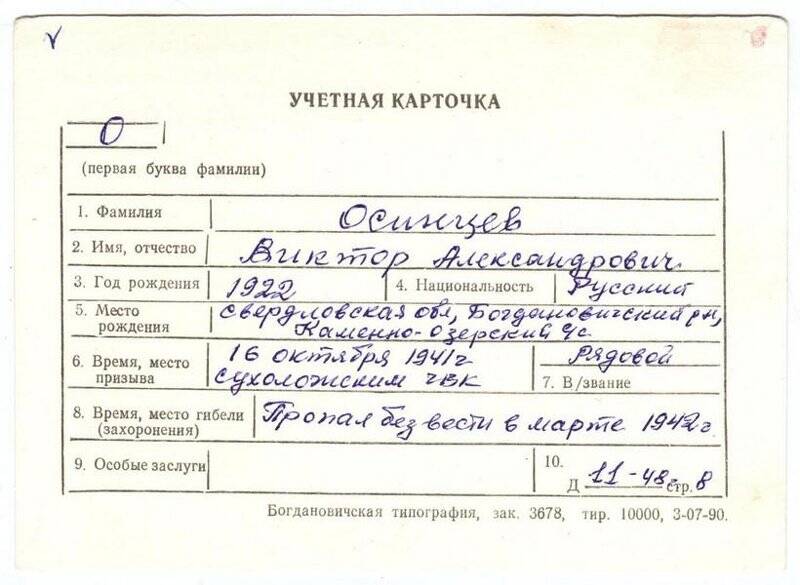 УЧЕТНАЯ КАРТОЧКА
О
(первая буква фамилии)
1. Фамилия Осинцев
2. Имя, отчество Виктор Александрович
3. Год рождения 1922 4. Национальность Русский
5. Место рождения Свердловская обл, Богдановичский рн,
Каменно-озерский с/с
6. Время, место призыва 16 октября 1941г
Сухоложским ЧВК
Рядовой
7. В/звание
8. Время, место гибели (захоронения) Пропал без вести в марте 1942г.
9. Особые заслуги
10.
Д 11-48 стр. 8
Богдановичская типография, зак. 3678, тир. 10000, 3-07-90.